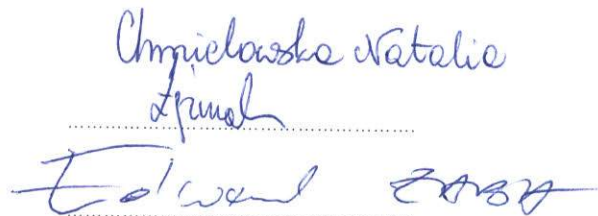 Chmielowska Natalia
Edward ŻABA